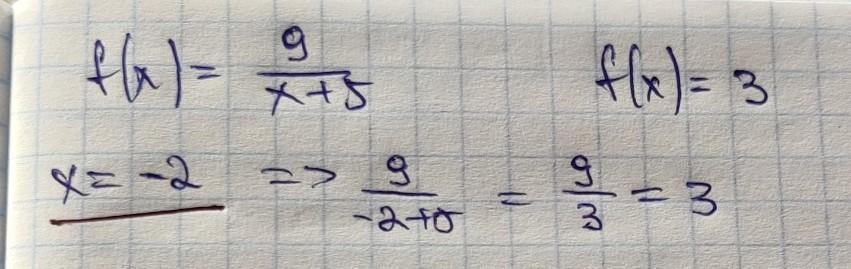 f(x) = 9/(x+5) f(x) = 3
x = -2 => 9/(-2+5) = 9/3 = 3